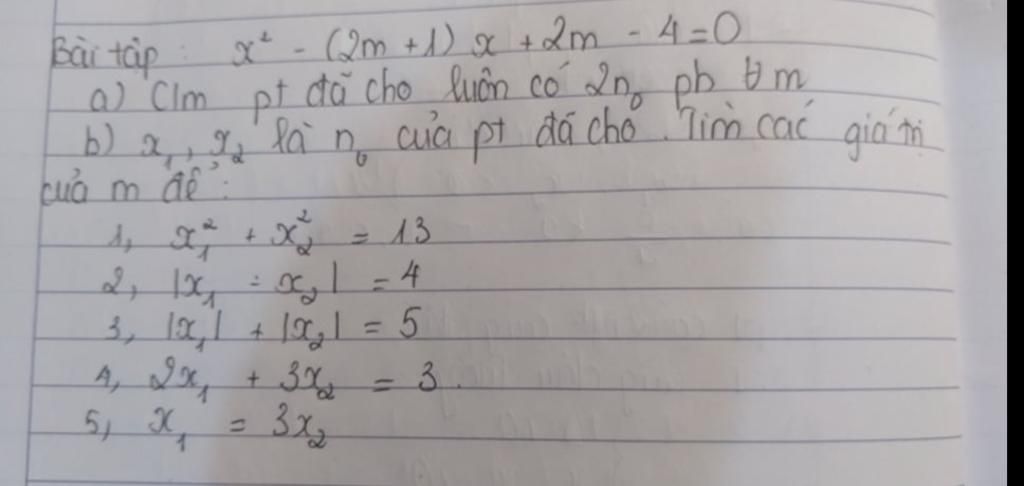 Bài tập: x² - (2m + 1) x + 2m - 4 = 0
a) C/m pt đã cho luôn có 2n₀ pb ∀ m
b) x₁, x₂ là n₀ của pt đã cho. Tìm các giá trị
của m để:
1, x₁² + x₂² = 13
2, |x₁ - x₂| = 4
3, |x₁| + |x₂| = 5
4, 2x₁ + 3x₂ = 3.
5, x₁ = 3x₂